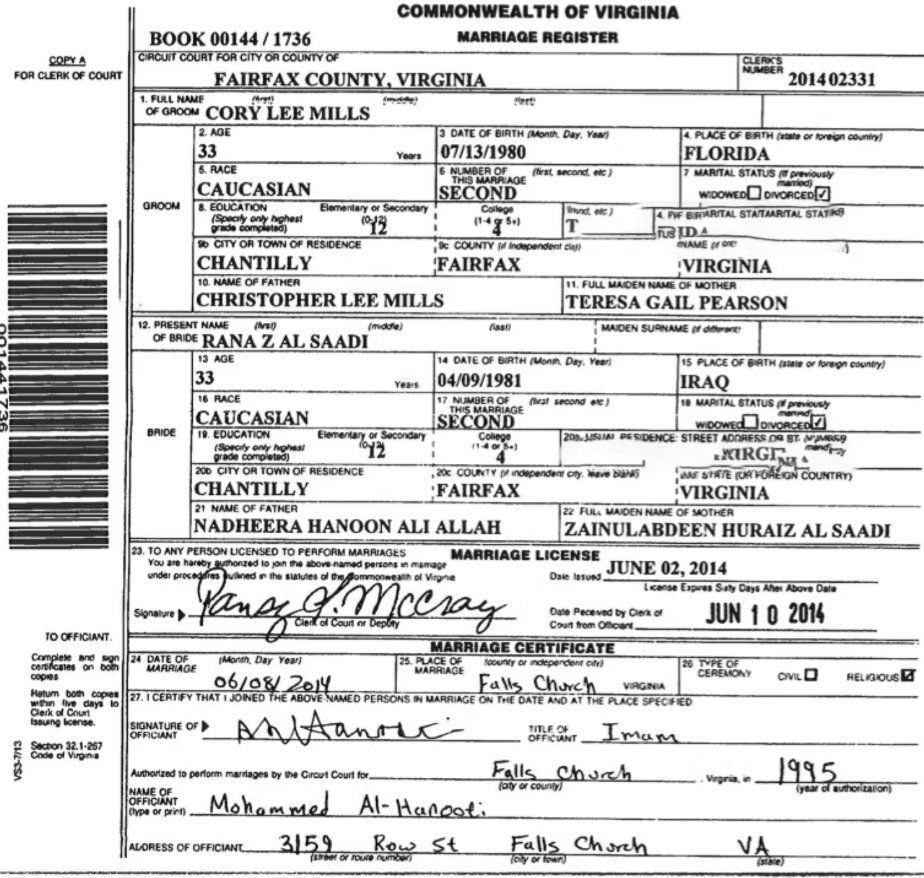 COMMONWEALTH OF VIRGINIA
MARRIAGE REGISTER
BOOK 00144 / 1736
COPY A
FOR CLERK OF COURT
CIRCUIT COURT FOR CITY OR COUNTY OF
FAIRFAX COUNTY, VIRGINIA
CLERK'S NUMBER 2014 02331
1. FULL NAME OF GROOM (first) (middle) (last)
CORY LEE MILLS
GROOM
2. AGE
33 Years
3 DATE OF BIRTH (Month, Day, Year)
07/13/1980
4. PLACE OF BIRTH (state or foreign country)
FLORIDA
5. RACE
CAUCASIAN
6 NUMBER OF THIS MARRIAGE (first, second, etc)
SECOND
7 MARITAL STATUS (If previously married)
WIDOWED DIVORCED ✓
8. EDUCATION (Specify only highest grade completed)
Elementary or Secondary (0-12)
12
College (1-4 or 5+)
4
9b CITY OR TOWN OF RESIDENCE
CHANTILLY
9c COUNTY (if independent city)
FAIRFAX
VIRGINIA
10. NAME OF FATHER
CHRISTOPHER LEE MILLS
11. FULL MAIDEN NAME OF MOTHER
TERESA GAIL PEARSON
12. PRESENT NAME OF BRIDE (first) (middle) (last)
RANA Z AL SAADI
MAIDEN SURNAME (if different)
BRIDE
13 AGE
33 Years
14 DATE OF BIRTH (Month, Day, Year)
04/09/1981
15 PLACE OF BIRTH (state or foreign country)
IRAQ
16 RACE
CAUCASIAN
17 NUMBER OF THIS MARRIAGE (first second etc)
SECOND
18 MARITAL STATUS (If previously married)
WIDOWED DIVORCED ✓
19. EDUCATION (Specify only highest grade completed)
Elementary or Secondary (0-12)
12
College (1-4 or 5+)
4
RESIDENCE: STREET ADDRESS OR ST. NUMBER
20b CITY OR TOWN OF RESIDENCE
CHANTILLY
20c COUNTY (if independent city, leave blank)
FAIRFAX
STATE (OR FOREIGN COUNTRY)
VIRGINIA
21 NAME OF FATHER
NADHEERA HANOON ALI ALLAH
22 FULL MAIDEN NAME OF MOTHER
ZAINULABDEEN HURAIZ AL SAADI
23. TO ANY PERSON LICENSED TO PERFORM MARRIAGES
MARRIAGE LICENSE
You are hereby authorized to join the above-named persons in marriage
under procedures outlined in the statutes of the Commonwealth of Virginia
Date Issued JUNE 02, 2014
License Expires Sixty Days After Above Date
Signature Pansy J. McCray
Clerk of Court or Deputy
Date Received by Clerk of Court from Officiant JUN 10 2014
MARRIAGE CERTIFICATE
24 DATE OF MARRIAGE (Month, Day Year)
06/08/2014
25. PLACE OF MARRIAGE (county or independent city)
Falls Church VIRGINIA
26 TYPE OF CEREMONY CIVIL RELIGIOUS ✓
27. I CERTIFY THAT I JOINED THE ABOVE-NAMED PERSONS IN MARRIAGE ON THE DATE AND AT THE PLACE SPECIFIED
SIGNATURE OF OFFICIANT
TITLE OF OFFICIANT Imam
Authorized to perform marriages by the Circuit Court for Falls Church, Virginia, in 1995
(city or county) (year of authorization)
NAME OF OFFICIANT (type or print) Mohammed Al-Hanooti
ADDRESS OF OFFICIANT. 3159 Row St Falls Church VA
(street or route number) (city or town) (state)
001441736
TO OFFICIANT.
Complete and sign
certificates on both
copies
Return both copies
within five days to
Clerk of Court
issuing license.
Section 32.1-267
Code of Virginia
VS3-7/13